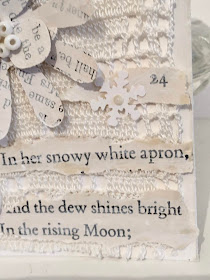 be a
hall be
same
24
In her snowy white apron,
and the dew shines bright
In the rising Moon;